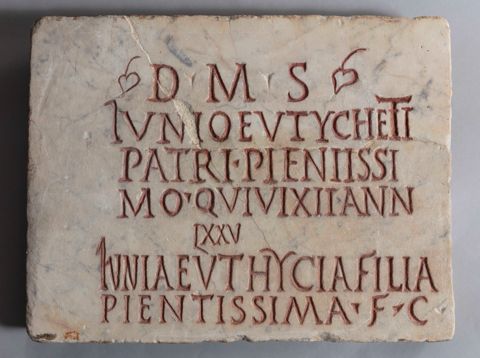 D M S
IVNIO EVTYCHETI
PATRI·PIENTISSI
MO·QVIVIXIT·ANN
LXXV
IVNIA EVTHYCIA FILIA
PIENTISSIMA·F·C